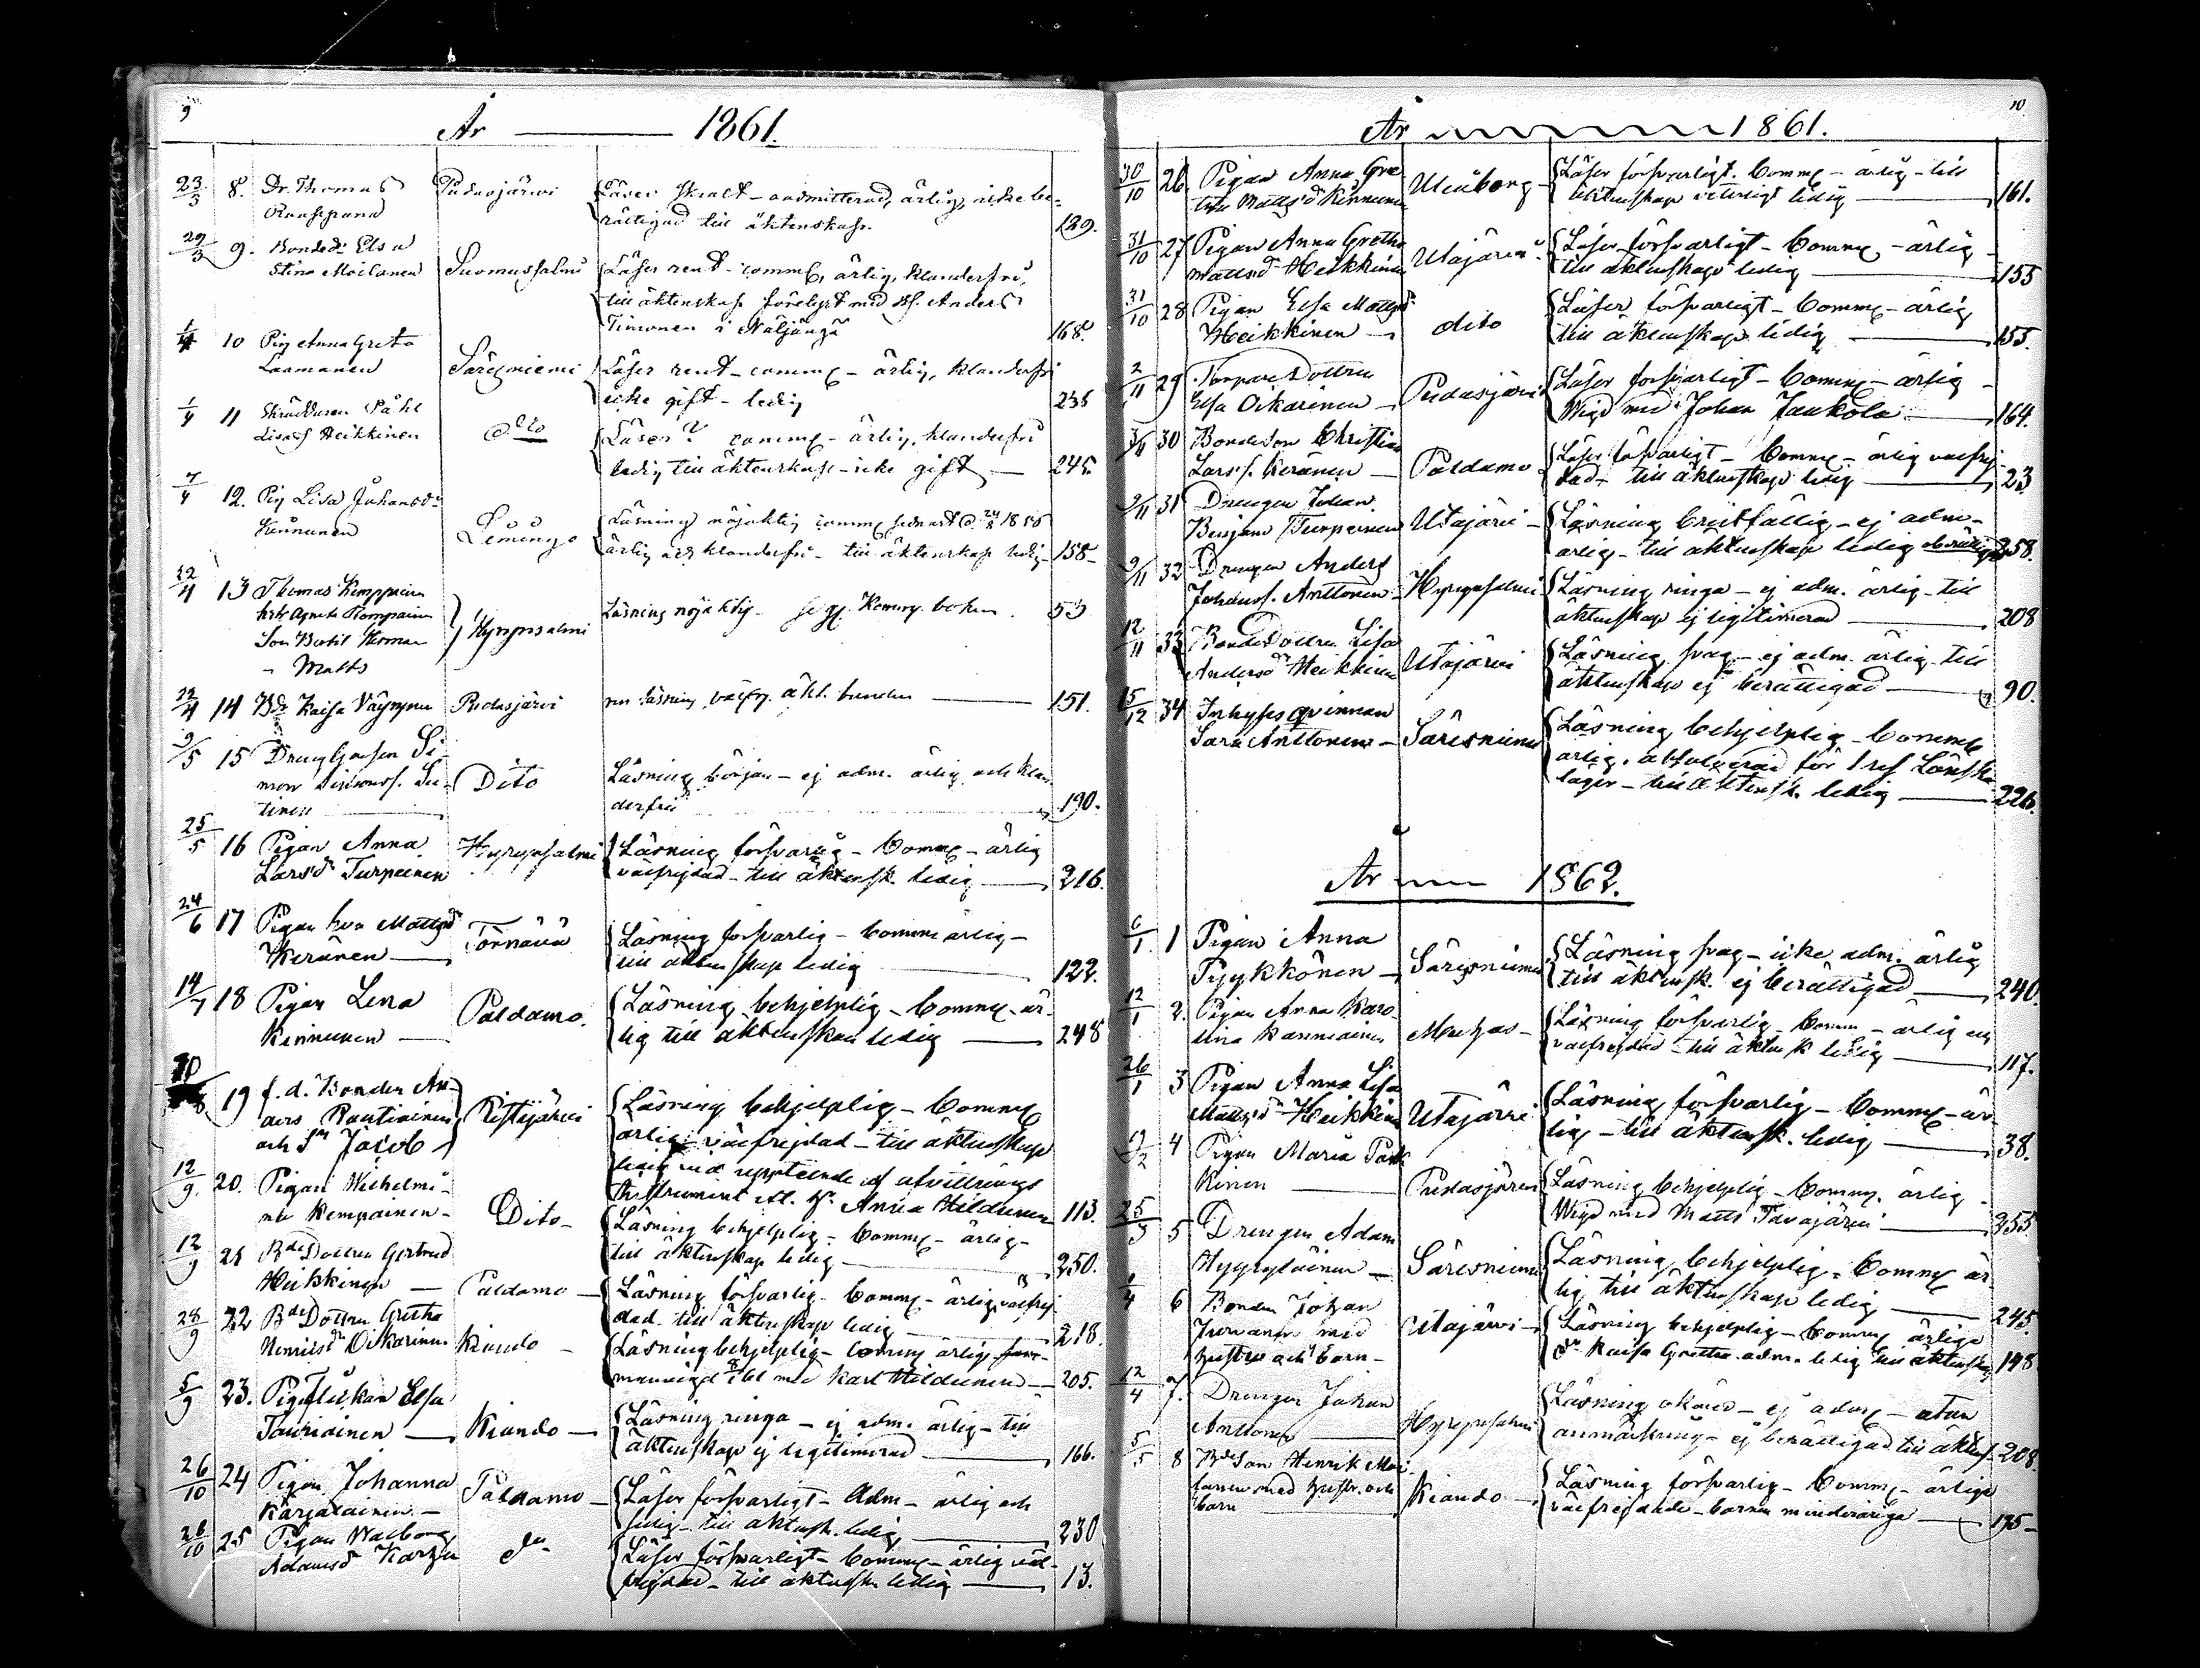 9
År ——— 1861.
23/3 8. Dr. Thomas Pudasjärvi Läser skralt - oadmitterad, ärlig, icke be-
rättigad till äktenskap. 129.
29/3 9. Bonded. Elsa
Stina Moilanen Suomussalmi Läser rent - comm, ärlig, klanderfri,
till äktenskap förelyst med Anders
Timonen i Näljängä 168.
1/4 10 Pig Anna Greta
Laamanen Säresniemi Läser rent - comm - ärlig, klanderfri
icke gift - ledig 235
1/4 11 Påhl
Heikkinen dito Läser? comm - ärlig, klanderfri
ledig till äktenskap - icke gift — 245
7/4 12. Pig Lisa Johansdr
Kinnunen Limingo Läsning nöjaktig comm senast d. 24/8 1856
ärlig och klanderfri - till äktenskap ledig - 158 -
22/4 13 Thomas Kemppainen
hstr Agneta Kemppainen
Son Bertil Herman
" Matts Hyrynsalmi Läsning nöjaktig. Komm. boken. 53
22/4 14 Bdr Kaisa Väyrynen Pudasjärvi ren läsning välfr. äkt. bunden — 151.
9/5 15 Si-
mon Simonss. Su-
tinen Dito Läsning början - ej adm. ärlig och klan
derfri 190.
25/5 16 Pigan Anna
Larsdr Turpeinen Hyrynsalmi Läsning försvarlig - Comm - ärlig
välfrejdad - till äktensk. ledig — 216.
24/6 17 Pigan Eva Mattsdr
Keränen — Törnävä Läsning försvarlig - Comm ärlig -
till äktenskap ledig — 122.
14/7 18 Pigan Lena
Kinnunen — Paldamo. Läsning behjelplig - Comm - är-
lig till äktenskap ledig — 248
19 f.d. Bonden An-
ders Rautiainen
och Sn Jacob Ristijärvi Läsning behjelplig - Comm
ärlig välfrejdad - till äktenskap
ledig med uppteende af afvittrings
Instrument eft. h. Anna Hildunen 113.
12/9. 20. Pigan Wilhelmi-
na Kempainen - Dito - Läsning behjelplig - Comm - ärlig -
till äktenskap ledig — 250.
12/9 21 Bde Dottren Gertrud
Heikkinen — Paldamo — Läsning försvarlig - Comm - ärlig välfrej
dad - till äktenskap ledig — 218.
28/9 22 Bde Dottren Gretha
Henriksdr Oikarinen Kiando - Läsning behjelplig - Comm ärlig
med Karl Hildunen — 205.
5/9 23. Pigflickan Elsa
Tauriainen — Kiando — Läsning ringa - ej adm. ärlig - till
äktenskap ej legitimerad — 166.
26/10 24 Pigan Johanna
Karjalainen - Paldamo - Läser försvarligt - Adm - ärlig och
ledig - till äktensk. ledig — 230
28/10 25 Pigan Walborg
Adamsdr Karju do Läser försvarligt - Comm - ärlig väl-
frejdad - till äktensk. ledig — 13.
10
År 1861.
30/10 26 Pigan Anna Gre
tha Mattsdr Kinnunen Uleåborg - Läser försvarligt. Comm - ärlig - till
äktenskap veterligt ledig — 161.
31/10 27 Pigan Anna Gretha
Mattsdr Heikkinen Utajärvi Läser försvarligt - Comm - ärlig -
till äktenskap ledig — 155
31/10 28 Pigan Elsa Mattsdr
Heikkinen — dito Läser försvarligt - Comm - ärlig
till äktenskap ledig — 155.
2/11 29 Torpare Dottren
Elsa Oikarinen - Pudasjärvi Läser försvarligt - Comm - ärlig -
Wigd med Johan Jaukola — 164.
3/11 30 Bonde Son Christian
Larss. Keränen — Paldamo Läser försvarligt - Comm - ärlig välfrej
dad - till äktenskap ledig — 23
9/11 31 Drengen Johan
Benjam Turpeinen Utajärvi - Läsning bristfällig - ej adm -
ärlig - till äktenskap ledig 258.
9/11 32 Drengen Anders
Johanss. Anttonen - Hyrynsalmi Läsning ringa - ej adm. ärlig - till
äktenskap ej legitimerad — 208
12/11 33 Bonde Dottren Lisa
Andersdr Heikkinen Utajärvi Läsning svag - ej adm. ärlig till
äktenskap ej berättigad — 90.
15/12 34 Inhyses qvinnan
Sara Anttonen - Säresniemi Läsning behjelplig - Comm
ärlig, absolverad för 1 resa Lönska
läger - till äktensk. ledig — 226.
År 1862.
6/1. 1 Pigan Anna
Pyykkönen — Säresniemi Läsning svag - icke adm. ärlig
till äktensk. ej berättigad — 240.
12/1 2. Pigan Anna Karo-
lina Karmainen Muhos - Läsning försvarlig - Comm - ärlig och
välfrejdad - till äktensk ledig — 117.
26/1 3 Pigan Anna Lisa
Mattsdr Heikkinen Utajärvi Läsning försvarlig - Comm - är-
lig - till äktensk. ledig — 38.
9/2 4 Pigan Maria Park
kinen — Pudasjärvi Läsning behjelplig - Comm. ärlig -
Wigd med Matts Tavajärvi — 255
25/3 5 Drengen Adam
Hyyryläinen — Säresniemi Läsning behjelplig - Comm är
lig till äktenskap ledig — 245.
1/4 6 Bonden Johan
Juvani med
hustru och barn - Utajärvi - Läsning behjelplig - Comm ärliga
dr Kaisa Gretha adm. ledig till äktensk 198
12/4 7. Drengen Johan
Anttonen Hyrynsalmi Läsning okänd - ej adm - utan
anmärkning - ej berättigad till äktensk. 208.
5/5 8 Bde Son Henrik Moi-
lanen med hustr. och
barn Kiando - Läsning försvarlig - Comm - ärliga
välfrejdade - barnen minderåriga — 195 -